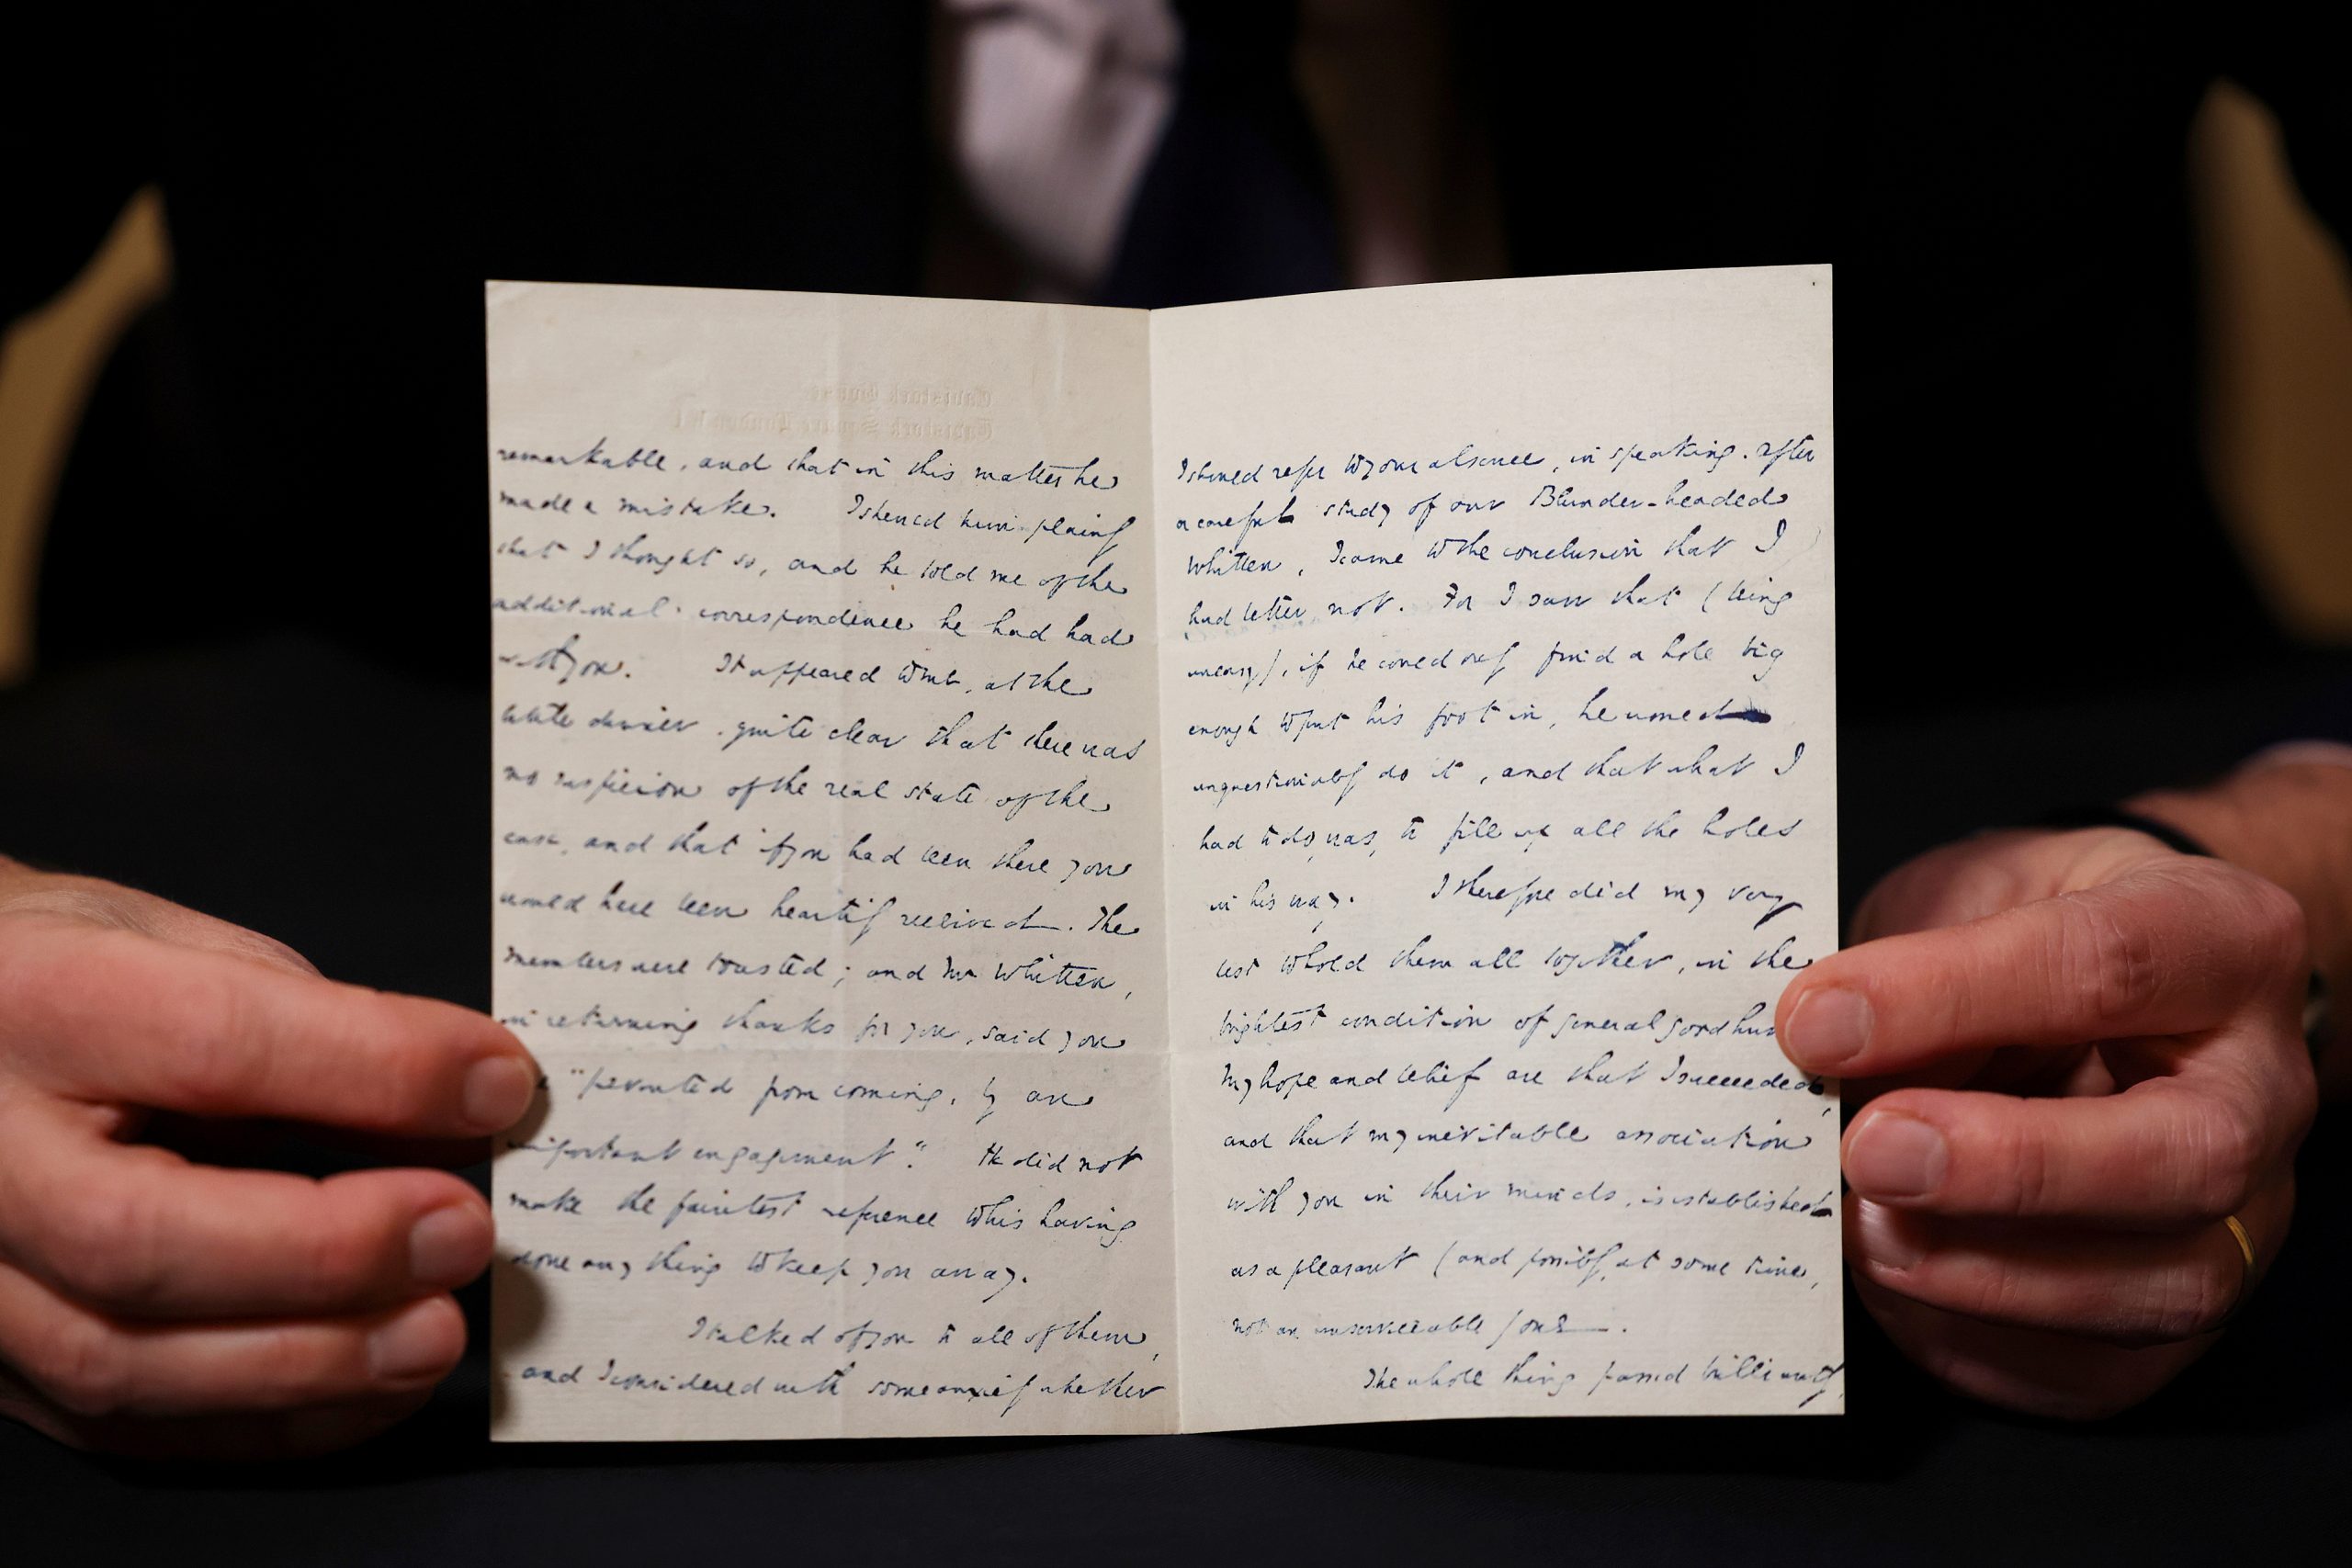 remarkable, and that in this matter he
made a mistake. I shewed him plainly
that I thought so, and he told me of the
additional correspondence he had had
with you. It appeared to me, at the
dinner, quite clear that there was
no suspicion of the real state of the
case, and that if you had been there you
would have been heartily received. The
members were toasted; and Mr Whitten,
in returning thanks for you, said you
"prevented from coming, by an
important engagement". He did not
make the faintest reference to his having
done any thing to keep you away.
I talked of you to all of them,
and I considered with some anxiety whether
I should refer to your absence, in speaking. After
a careful study of our Blunder-headed
Whitten, I came to the conclusion that I
had better not. For I saw that (being
uneasy), if he could only find a hole big
enough to put his foot in, he would
unquestionably do it, and that what I
had to do, was, to fill up all the holes
in his way. I therefore did my very
best to hold them all together, in the
brightest condition of general good
My hope and belief are that I succeeded,
and that my inevitable association
with you in their minds, is established
as a pleasant (and possibly, at some time,
not an unserviceable) one.
The whole thing passed brilliantly,